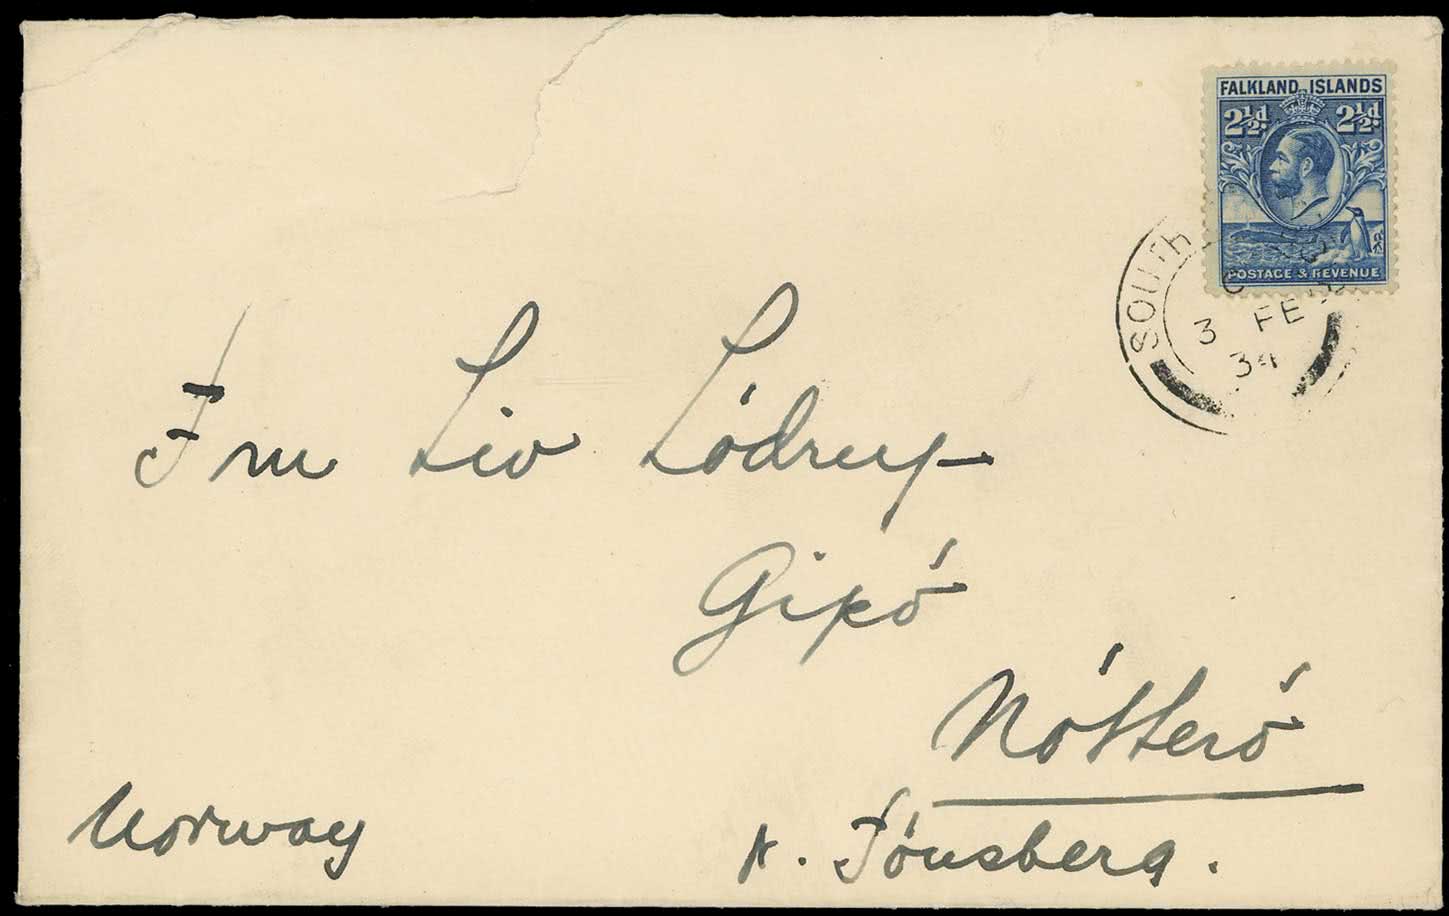 FALKLAND ISLANDS
2½d 2½d
POSTAGE & REVENUE
SOUTH
3 FE
34
Fru Liv Lódrup
Gipó
Nótteró
Norway
p. Tónsberg.